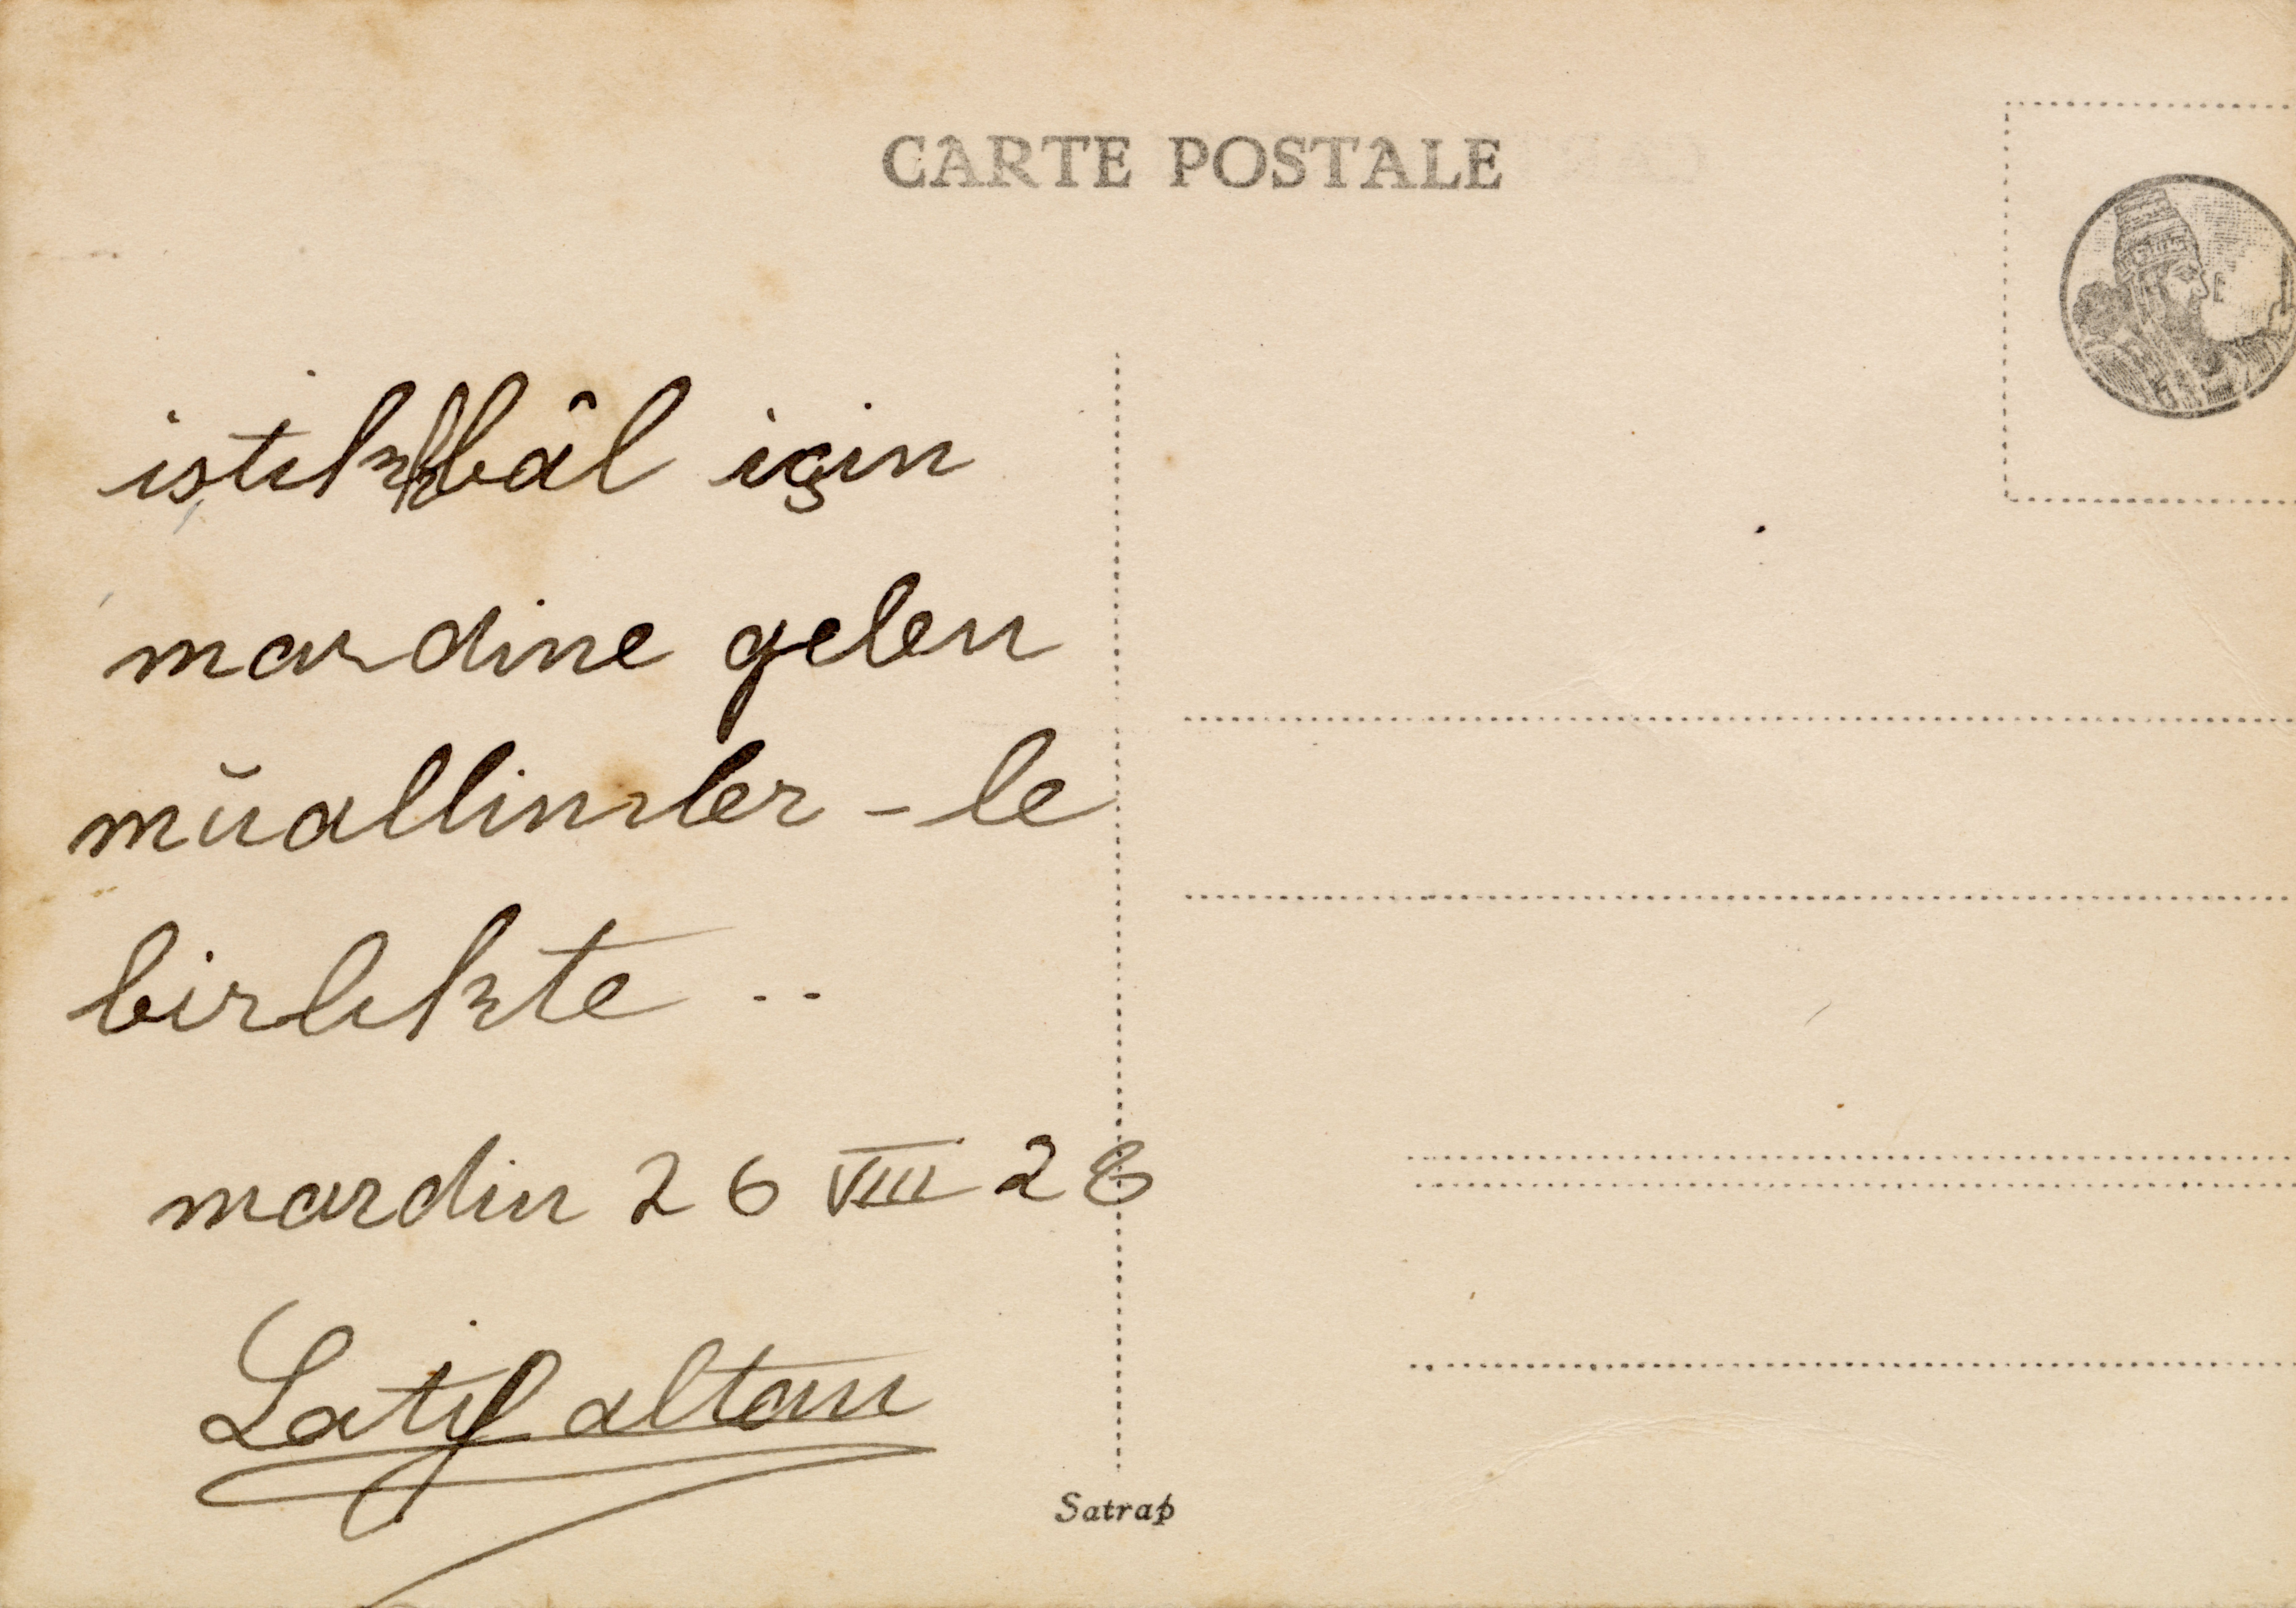 CARTE POSTALE
istikbâl için
mardine gelen
müallimler-le
birlikte ..
mardin 26 VIII 28
Latif altan
Satrap